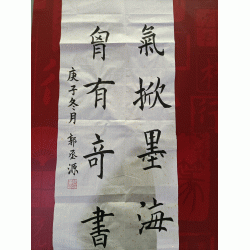 氣掀墨海
胷有奇書
庚子冬月 郭丞源